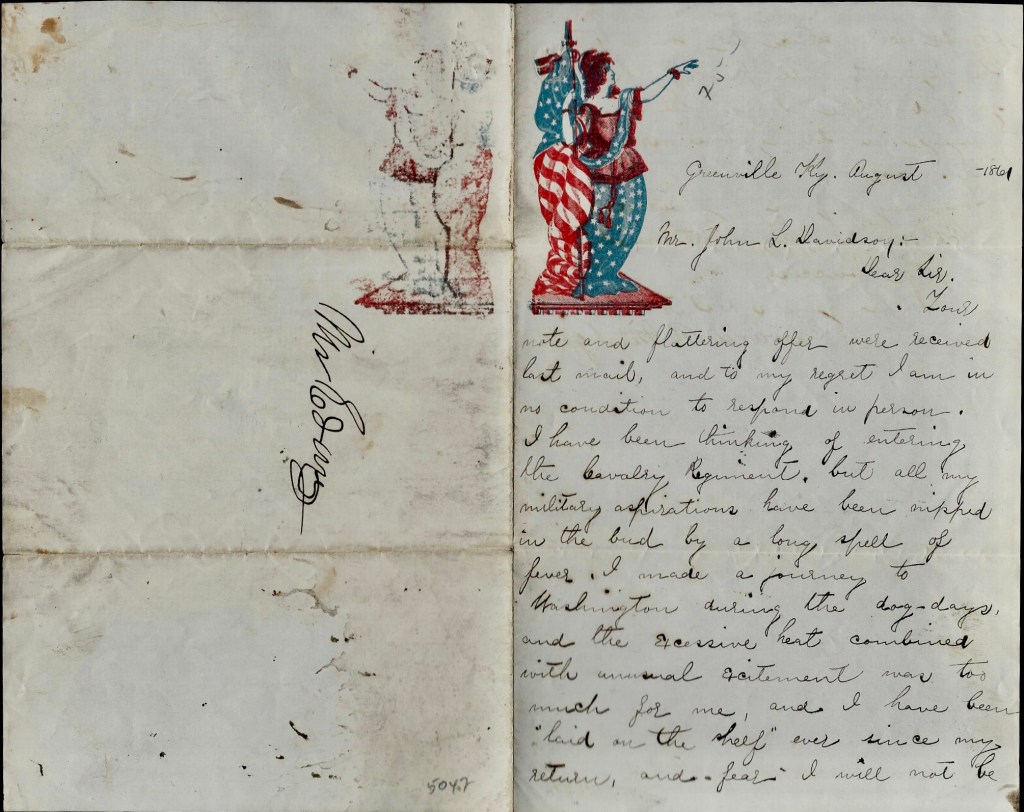 Greenville Ky. August - 1861
Mr. John L. Davidson:-
Dear Sir.
Your
note and flattering offer were received
last mail, and to my regret I am in
no condition to respond in person.
I have been thinking of entering
the Cavalry Regiment, but all my
military aspirations have been nipped
in the bud by a long spell of
fever. I made a journey to
Washington during the dog-days,
and the excessive heat combined
with unusual excitement was too
much for me, and I have been
"laid on the shelf" ever since my
return, and fear I will not be
5047